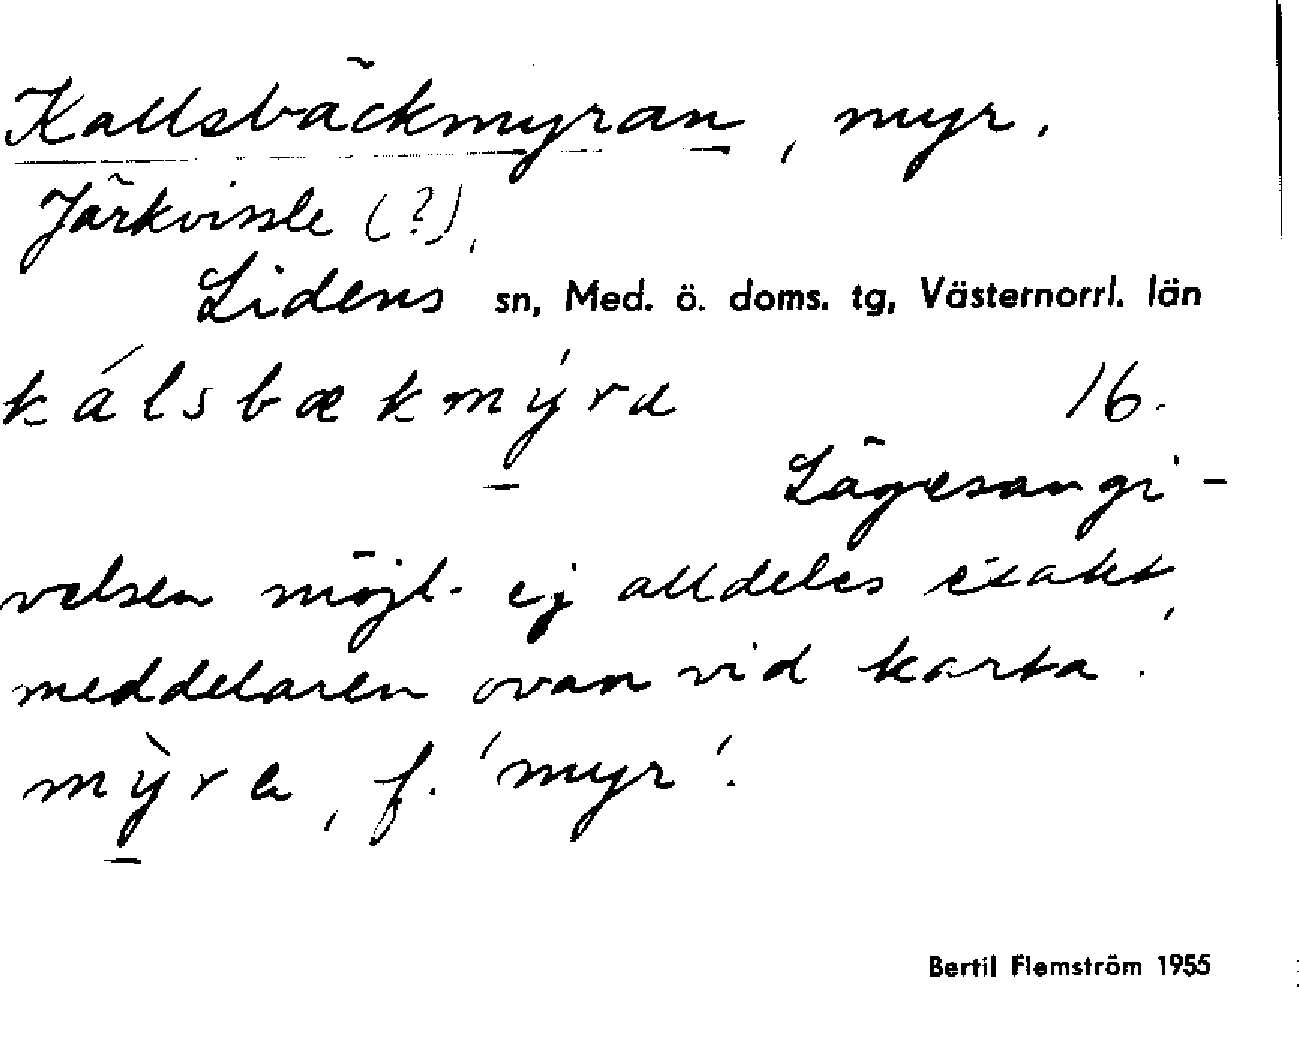 Kallsbäckmyran, myr.
Järkvissle (?),
Lidens sn, Med. ö. doms. tg, Västernorrl. län
kálsbækmýra 16.
Lägesangi-
velsen möjl. ej alldeles exakt,
meddelaren ovan vid karta.
mỳra, f. 'myr'.
Bertil Flemström 1955